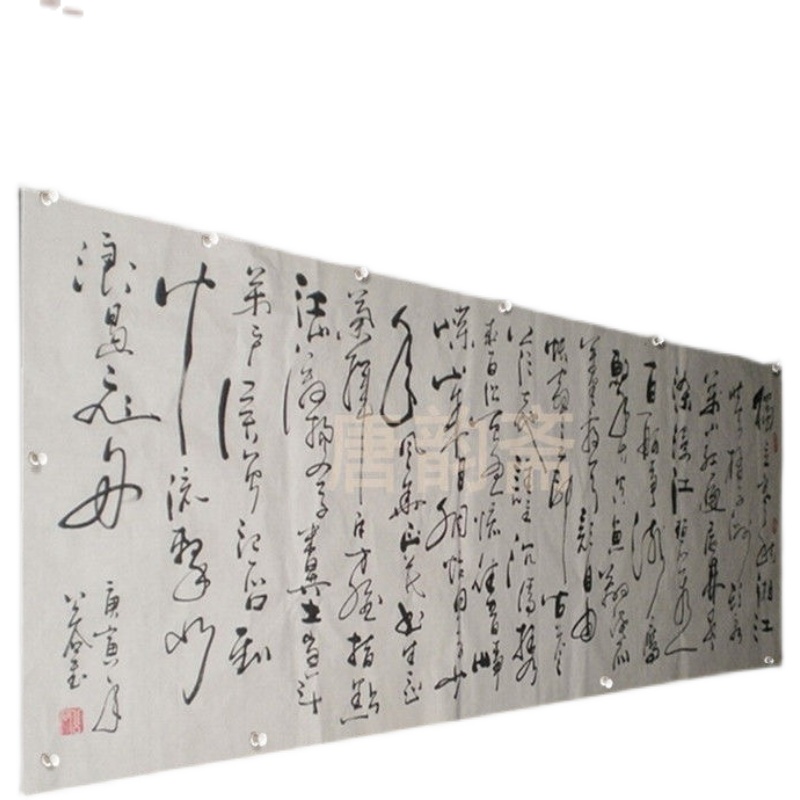 独立寒秋湘江
北去橘子洲头看
万山红遍层林尽
染漫江碧透
百舸争流鹰
击长空鱼翔浅底
万类霜天竞自由
怅寥廓问苍
茫大地谁主沉浮携
来百侣曾游忆往昔峥
嵘岁月稠恰同学少
年风华正茂书生意
气挥斥方遒指点
江山激扬文字粪土当年
万户侯曾记否到
中流击水
浪遏飞舟
庚寅年
唐韵斋